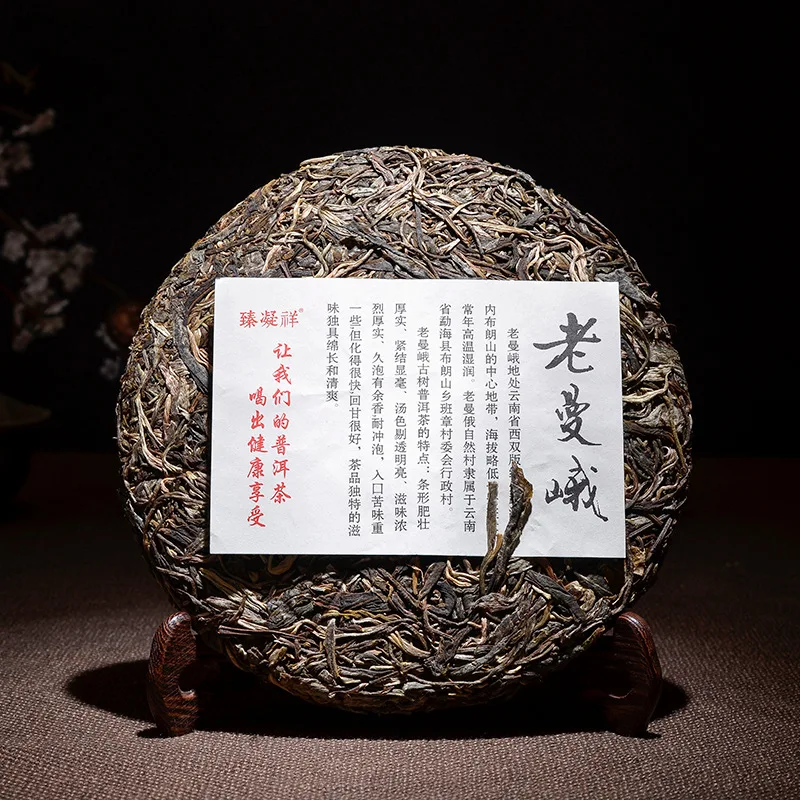 老曼峨
老曼峨地处云南省西双版
内布朗山的中心地带，海拔略低
常年高温湿润。老曼俄自然村隶属于云南
省勐海县布朗山乡班章村委会行政村。
老曼峨古树普洱茶的特点：条形肥壮
厚实、紧结显毫、汤色剔透明亮、滋味浓
烈厚实、久泡有余香耐冲泡，入口苦味重
一些，但化得很快，回甘很好，茶品独特的滋
味独具绵长和清爽。
臻凝祥®
让我们的普洱茶
喝出健康享受